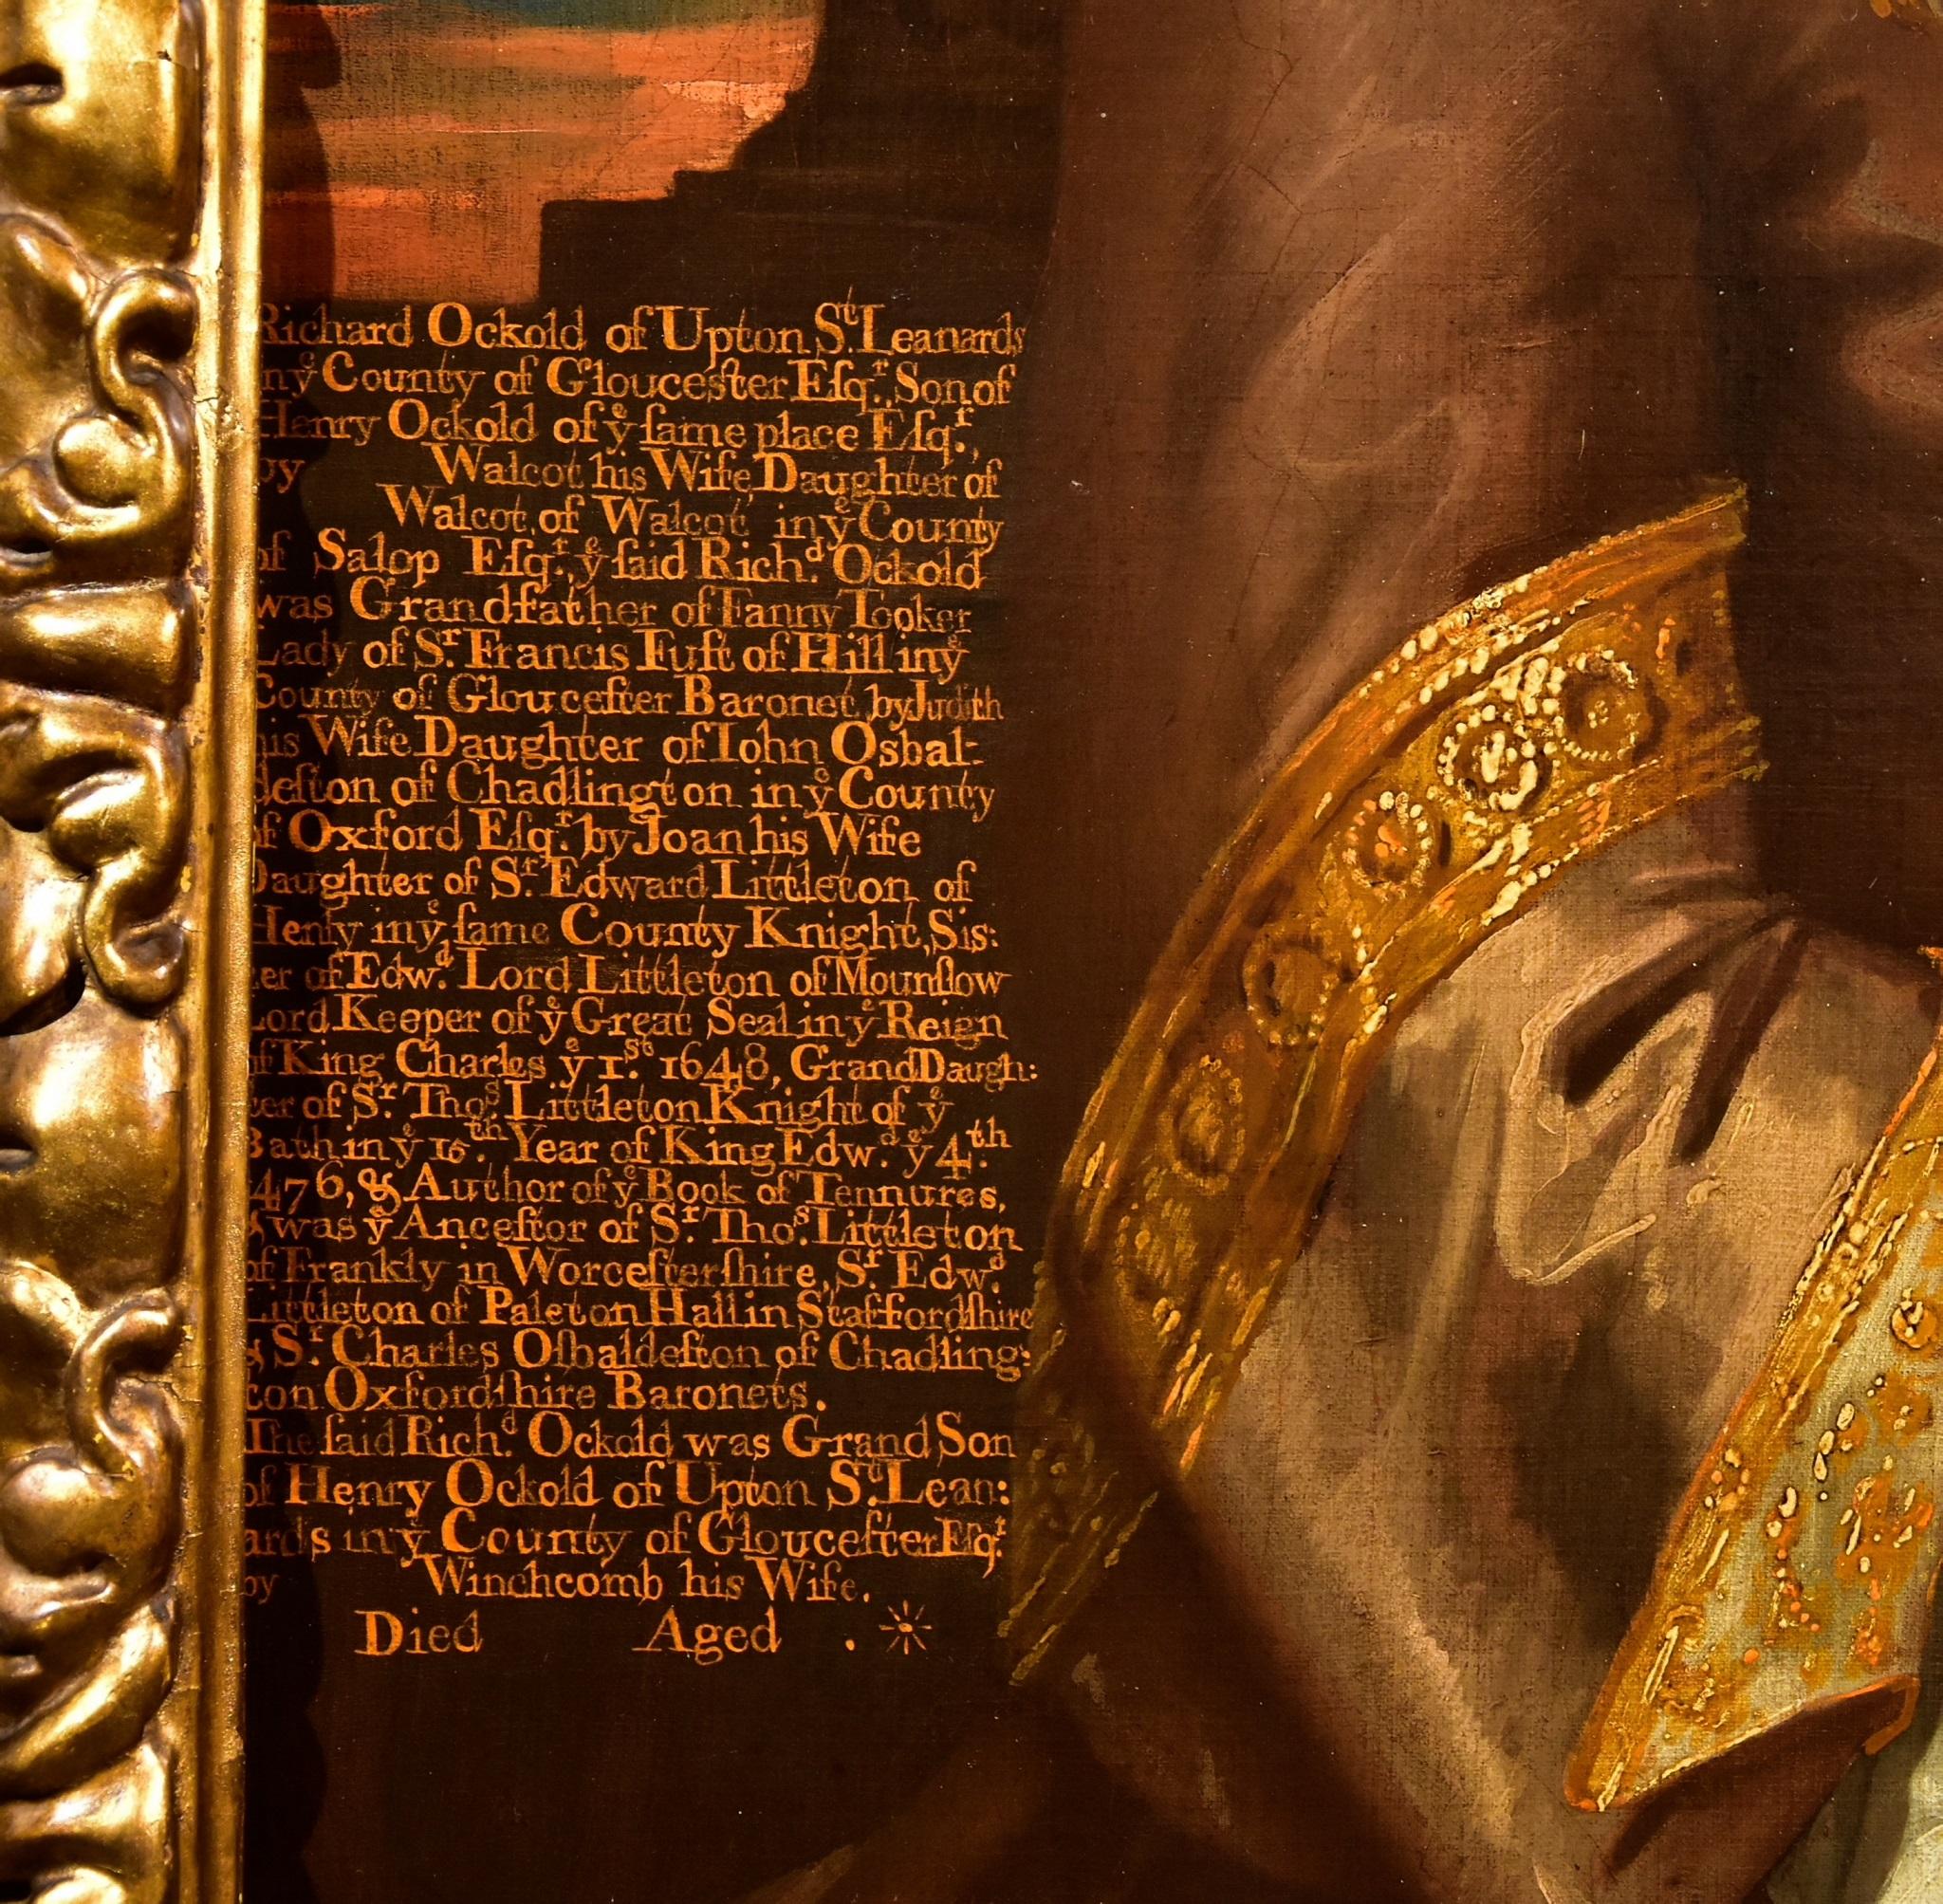 Richard Ockold of Upton S.ᵗ Leanards
in yᵉ County of Glouceſter Eſqʳ., Son of
Henry Ockold of yᵉ ſame place Eſqʳ.,
by Walcot his Wife, Daughter of
Walcot, of Walcot in yᵉ County
of Salop Eſqʳ., yᵉ ſaid Rich.ᵈ Ockold
was Grandfather of Fanny Tooker
Lady of Sʳ. Francis Fuſt of Hill in yᵉ
County of Glouceſter Baronet, by Judith
his Wife Daughter of Iohn Osbal:
deſton of Chadlington in yᵉ County
of Oxford Eſqʳ. by Joan his Wife
Daughter of Sʳ. Edward Littleton, of
Henly in yᵉ ſame County Knight, Sis:
ter of Edw.ᵈ Lord Littleton of Mounſlow
Lord Keeper of yᵉ Great Seal in yᵉ Reign
of King Charles yᵉ 1.ˢᵗ 1648, Grand Daugh:
ter of Sʳ. Tho.ˢ Littleton Knight of yᵉ
Bath in yᵉ 15.ᵗʰ Year of King Edw.ᵈ yᵉ 4.ᵗʰ
1476, & Author of yᵉ Book of Tennures,
& was yᵉ Anceſtor of Sʳ. Tho.ˢ Littleton
of Frankly in Worceſterſhire, Sʳ. Edw.ᵈ
Littleton of Paleton Hall in Staffordſhire
& Sʳ. Charles Oſbaldeſton of Chadling:
ton Oxfordſhire Baronets.
The ſaid Rich.ᵈ Ockold was Grand Son
of Henry Ockold of Upton S.ᵗ Lean:
ards in yᵉ County of Glouceſter Eſqʳ.
by Winchcomb his Wife.
Died Aged .